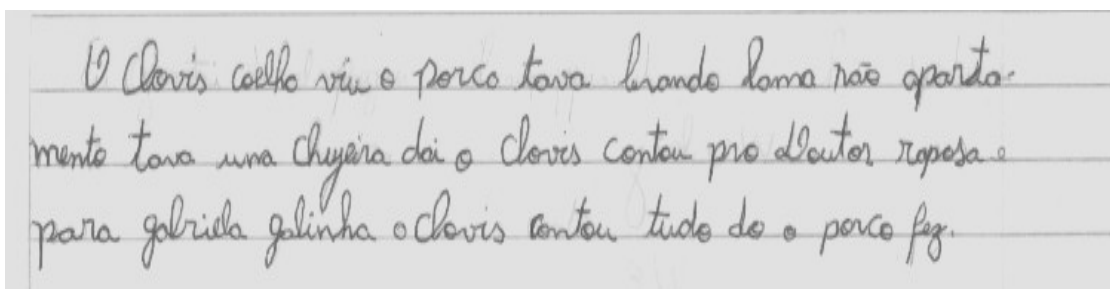 O Clovis coelho viu o porco tava levando lama não aparta-
mento tava uma chujeira dai o Clovis contou pro Doutor raposa e
para gabriela galinha o Clovis contou tudo do o porco fez.